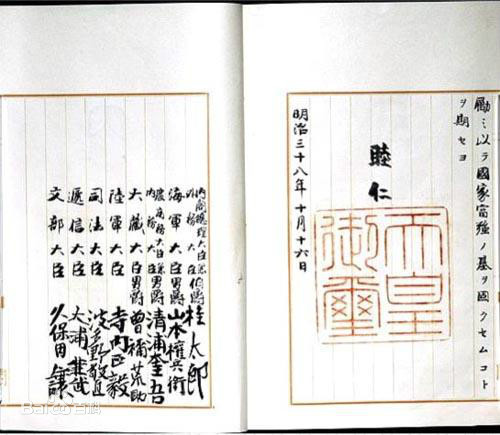 勵ミ以テ國家富強ノ基ヲ固クセムコト
ヲ期セヨ
睦仁
天皇
御璽
明治三十八年十月十六日
內閣總理大臣兼
外務大臣伯爵桂太郎
海軍大臣男爵山本權兵衛
農商務大臣兼
內務大臣男爵清浦奎吾
大藏大臣男爵曾禰荒助
陸軍大臣寺內正毅
司法大臣波多野敬直
遞信大臣大浦兼武
文部大臣久保田讓
Baidu百科